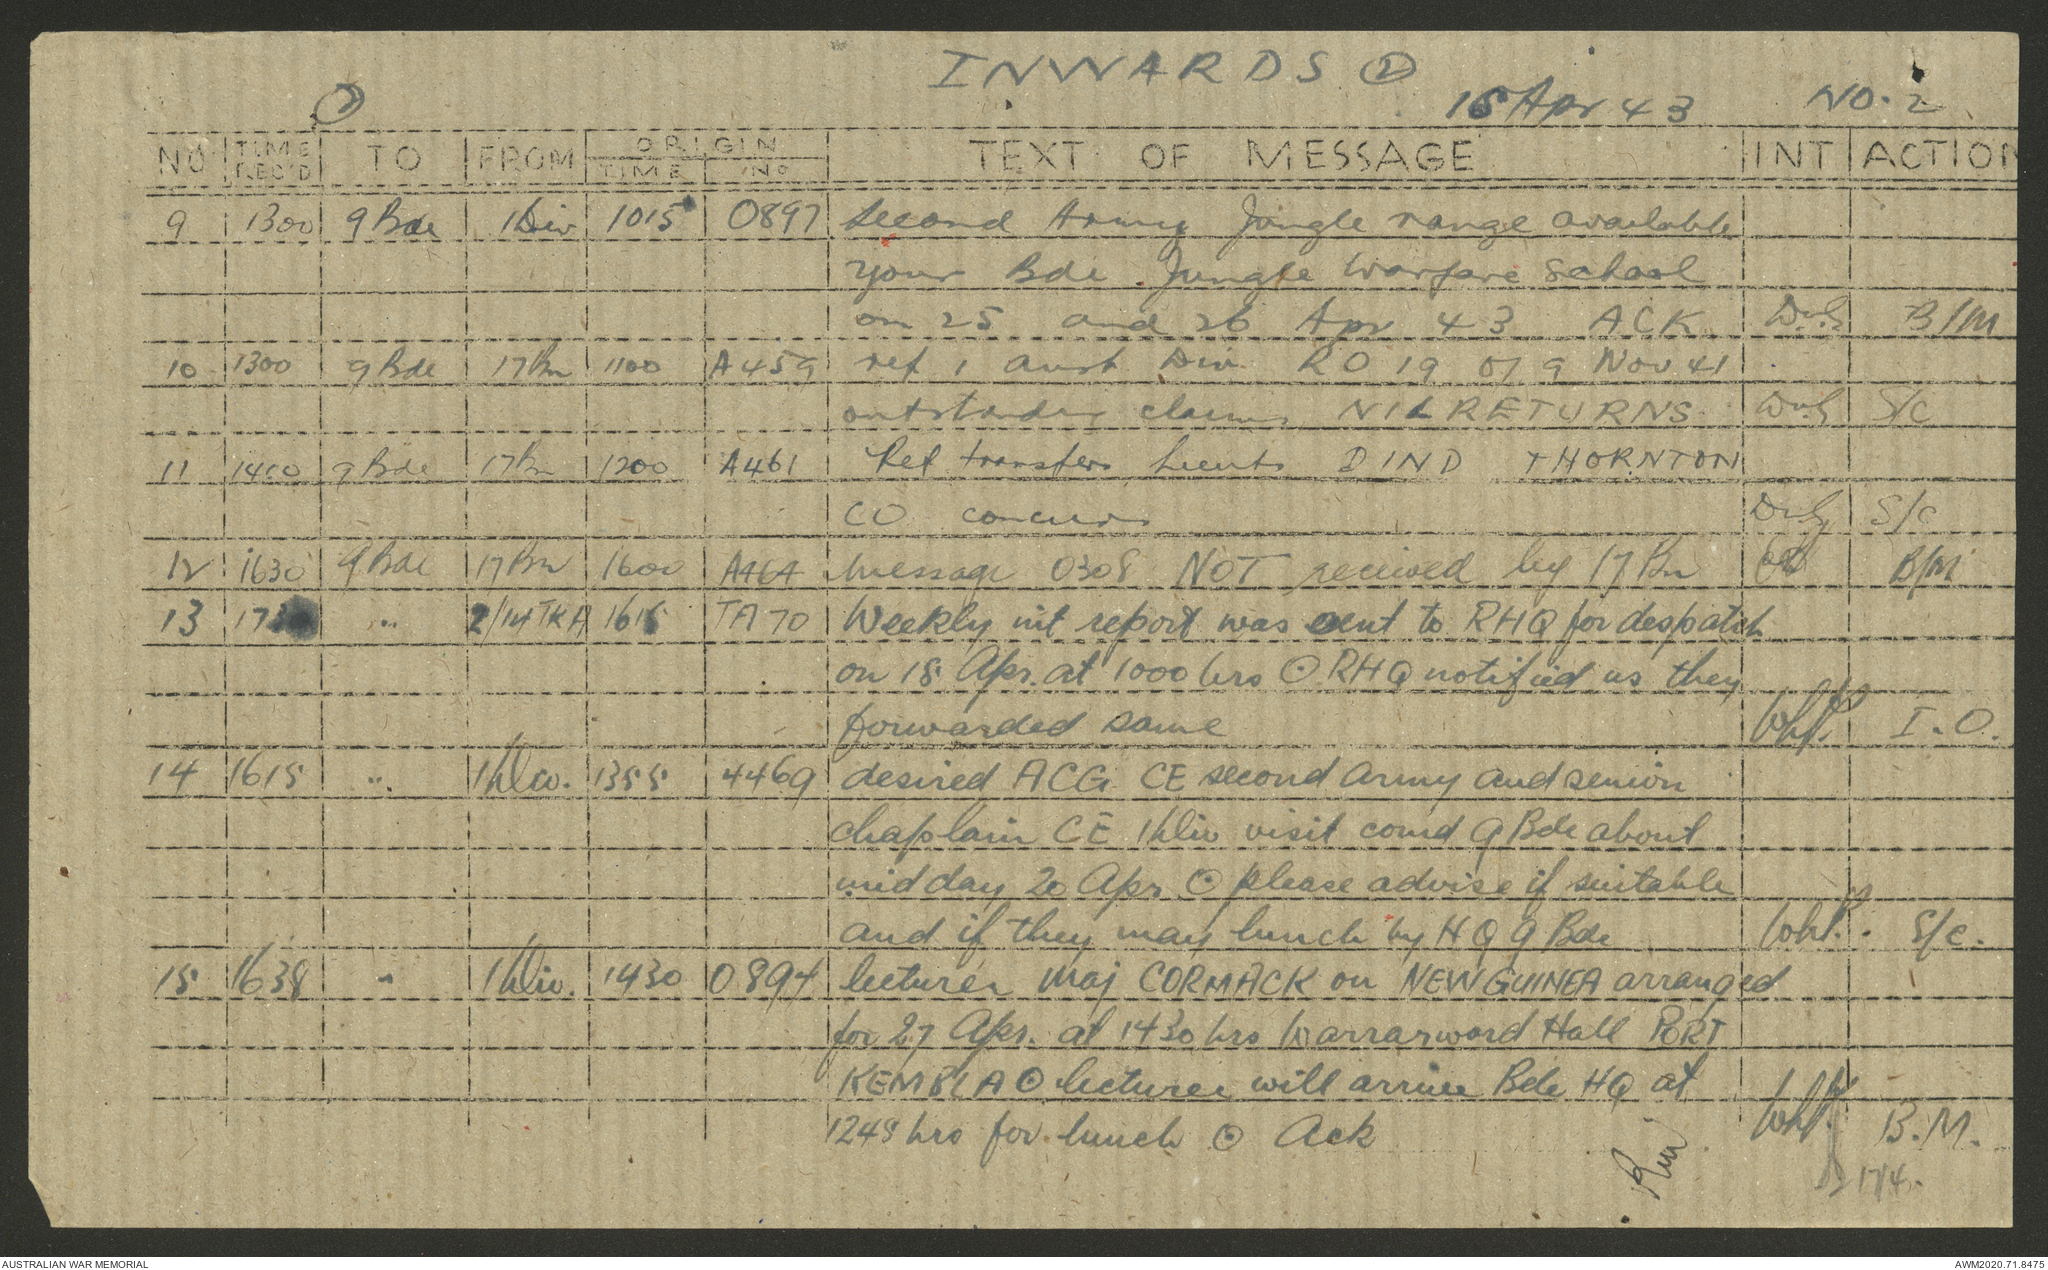 INWARDS ②
②
15 Apr 43 NO. 2
NO TIME REC'D TO FROM ORIGIN TIME NO TEXT OF MESSAGE INT ACTION
9 1300 9 Bde 1 Div 1015 0897 Second Army Jungle range available
your Bde. Jungle Warfare School
on 25 and 26 Apr 43 ACK B/M
10 1300 9 Bde 17 Bn 1100 A459 ref 1 aust Div RO 19 of 9 Nov 41
outstanding claims NIL RETURNS S/C
11 1400 9 Bde 17 Bn 1200 A461 Ref transfers Lieuts DIND THORNTON
CO concurs S/C
12 1630 9 Bde 17 Bn 1600 A464 Message 0308 NOT received by 17 Bn B/M
13 " 2/14 TKA 1615 TA70 Weekly int report was sent to RHQ for despatch
on 15 Apr. at 1000 hrs ⊙ RHQ notified us they
forwarded same I.O.
14 1615 " 1 Div. 1355 4469 desired ACG CE second army and senior
chaplain CE 1 Div visit comd 9 Bde about
midday 20 Apr ⊙ please advise if suitable
and if they may lunch by HQ 9 Bde S/C.
15 1638 " 1 Div. 1430 0894 lecturer Maj CORMACK on NEW GUINEA arranged
for 27 Apr. at 1430 hrs Warrarword Hall PORT
KEMBLA ⊙ lecturer will arrive Bde HQ at
1245 hrs for lunch ⊙ Ack B.M.
17/4.
AUSTRALIAN WAR MEMORIAL AWM2020.71.8475